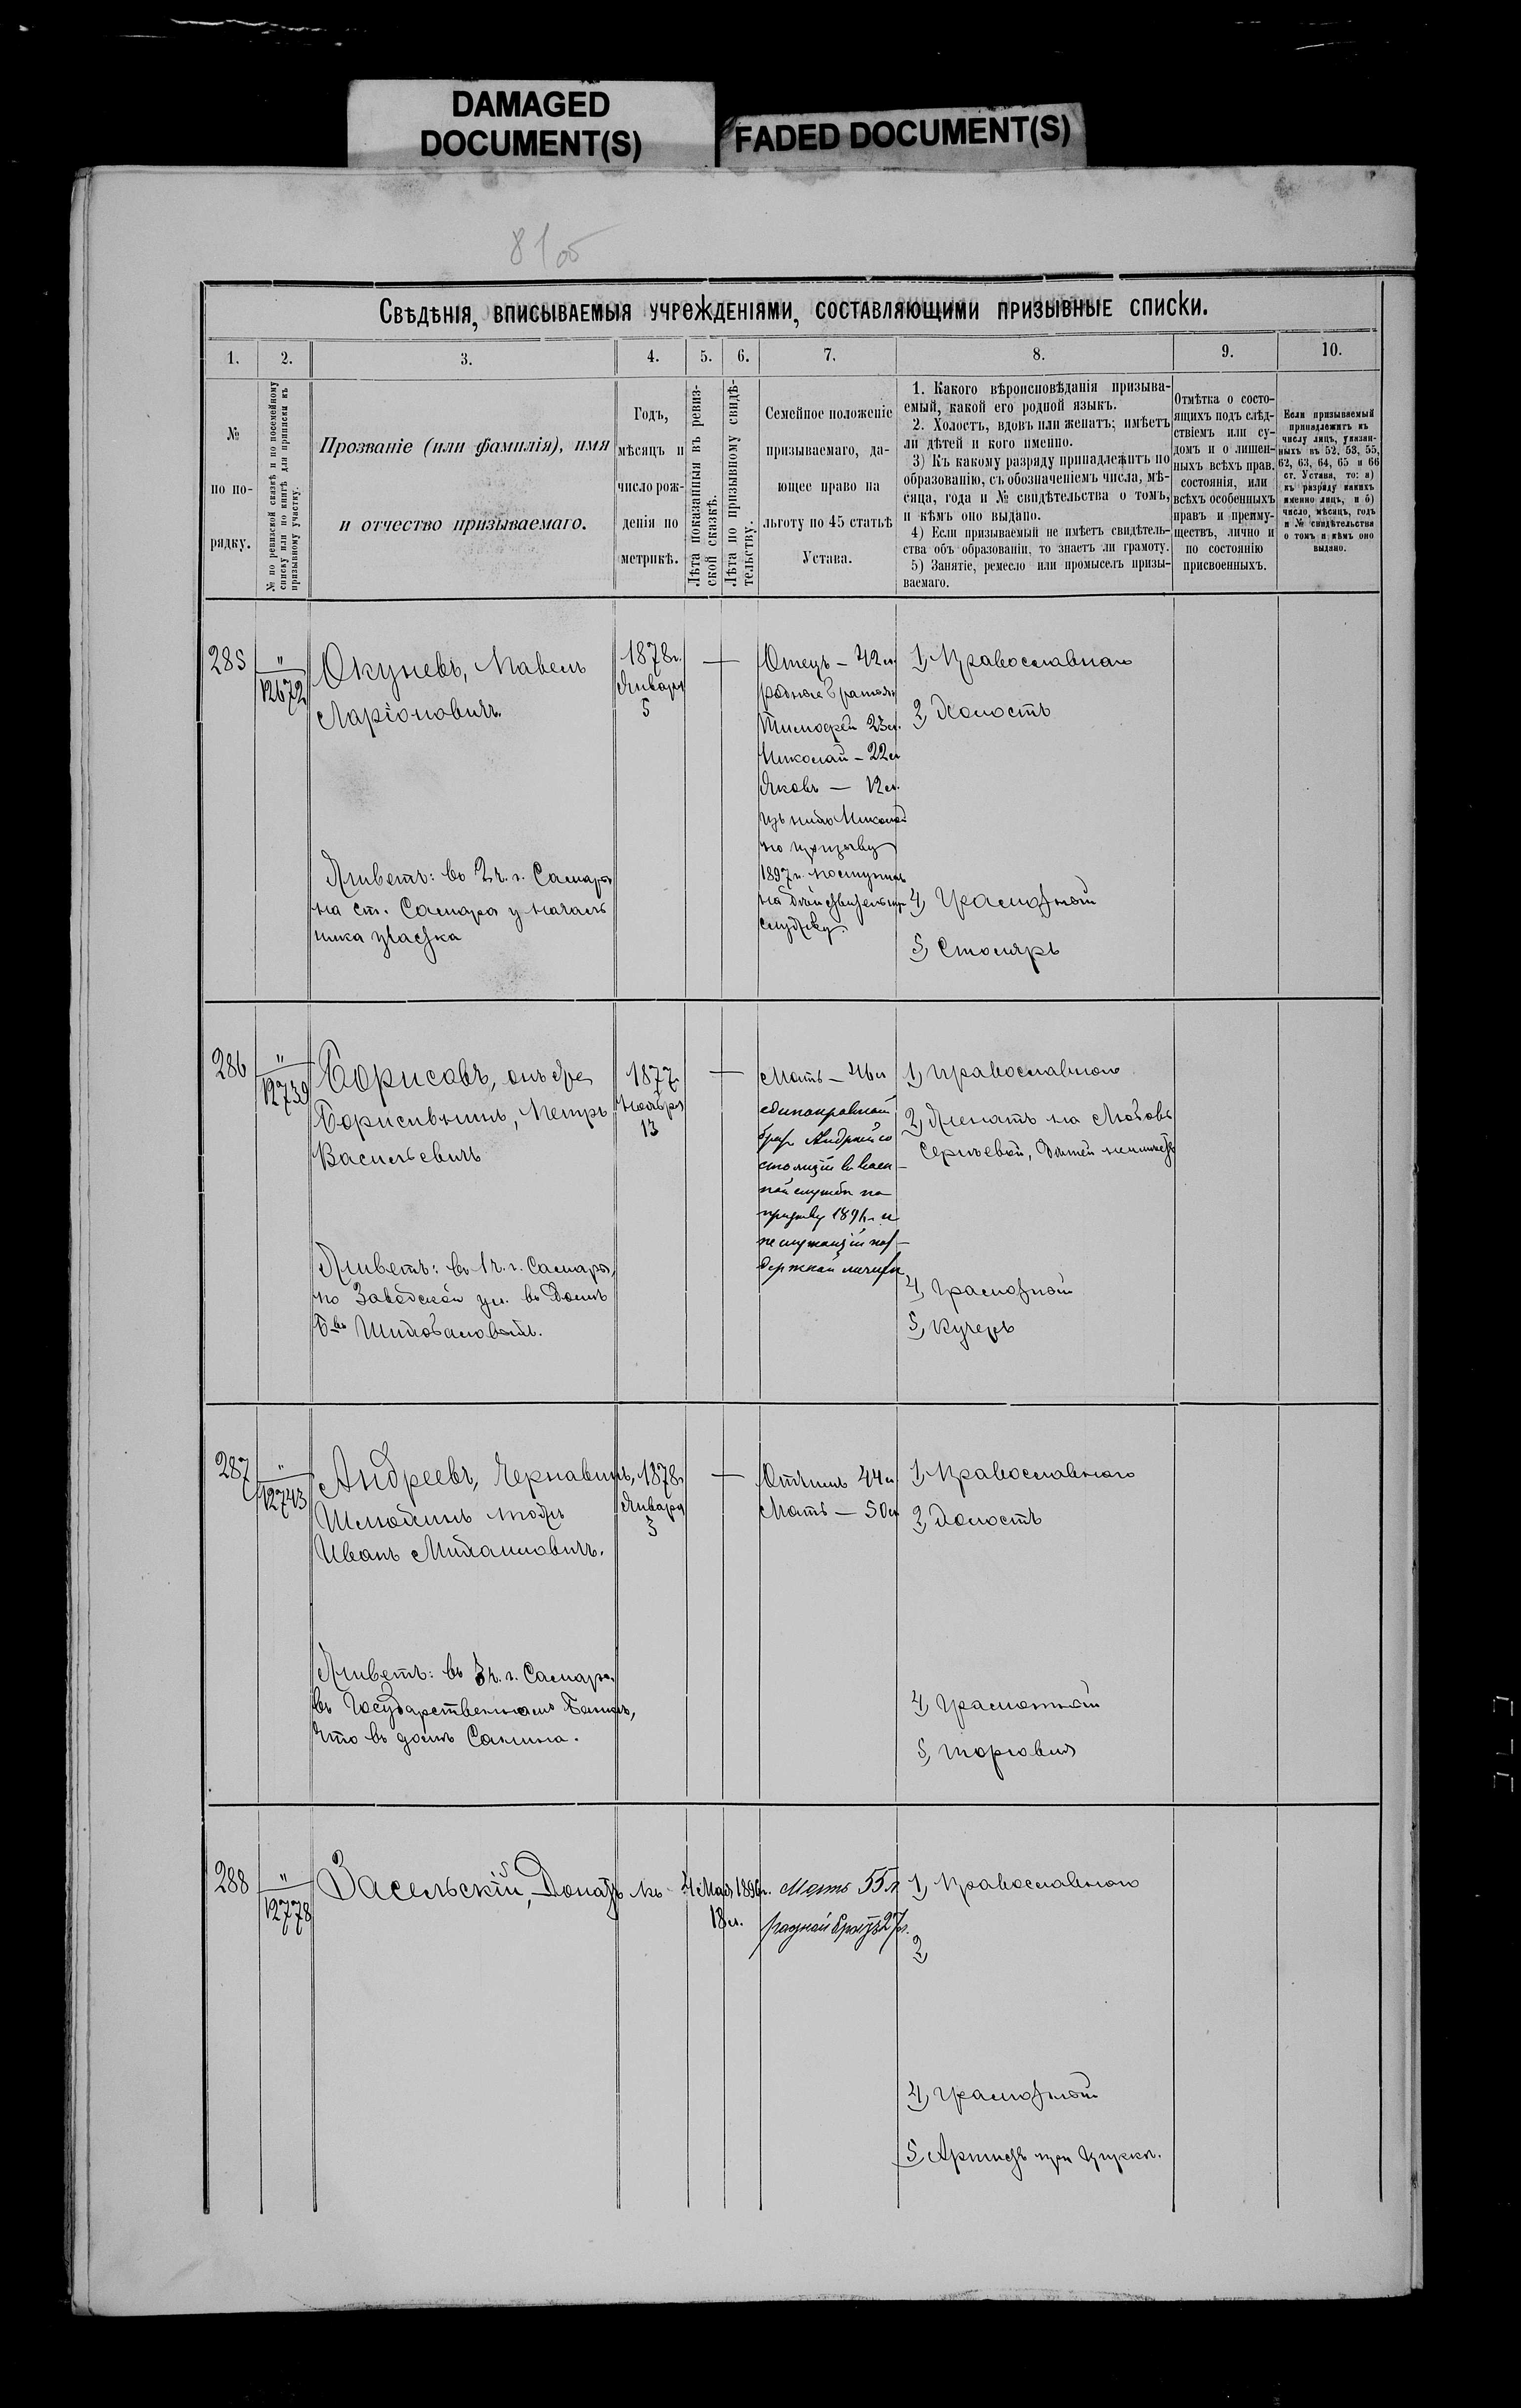 DAMAGED
DOCUMENT(S)
FADED DOCUMENT(S)
81об
Свѣдѣнія, вписываемыя учрежденіями, составляющими призывные списки.
1.
2.
3.
4.
5.
6.
7.
8.
9.
10.
№
по по-
рядку.
№ по ревизской сказкѣ и по посемейному
списку или по книгѣ для приписки къ
призывному участку.
Прозваніе (или фамилія), имя
и отчество призываемаго.
Годъ,
мѣсяцъ и
число рож-
денія по
метрикѣ.
Лѣта показанныя въ ревиз-
ской сказкѣ.
Лѣта по призывному свидѣ-
тельству.
Семейное положеніе
призываемаго, да-
ющее право на
льготу по 45 статьѣ
Устава.
1. Какого вѣроисповѣданія призыва-
емый, какой его родной языкъ.
2. Холостъ, вдовъ или женатъ; имѣетъ
ли дѣтей и кого именно.
3) Къ какому разряду принадлежитъ по
образованію, съ обозначеніемъ числа, мѣ-
сяца, года и № свидѣтельства о томъ,
и кѣмъ оно выдано.
4) Если призываемый не имѣетъ свидѣтель-
ства объ образованіи, то знаетъ ли грамоту.
5) Занятіе, ремесло или промыселъ призы-
ваемаго.
Отмѣтка о состо-
ящихъ подъ слѣд-
ствіемъ или су-
домъ и о лишен-
ныхъ всѣхъ прав.
состоянія, или
всѣхъ особенныхъ
правъ и преиму-
ществъ, лично и
по состоянію
присвоенныхъ.
Если призываемый
принадлежитъ къ
числу лицъ, указан-
ныхъ въ 52, 53, 55,
62, 63, 64, 65 и 66
ст. Устава, то: а)
къ разряду какихъ
именно лицъ, и б)
число, мѣсяцъ, годъ
и № свидѣтельства
о томъ и кѣмъ оно
выдано.
285
"
12672
Окуневъ, Павелъ
Ларіоновичъ.
Живетъ: во 2 ч. г. Самары
на ст. Самара у началь
ника участка
1878 г.
Января
5
Отецъ – 42 л.
родные братья
Тимофей 23 л.
Николай – 22 л
Яковъ – 12 л.
изъ нихъ Николай
по призыву
1897 г. поступилъ
на дѣйствительную
службу.
1, Православнаго
2, Холостъ
4, Грамотный
5, Столяръ
286
"
12739
Борисовъ, онъ же
Борисивнинъ, Петръ
Васильевичъ
Живетъ: въ 1 ч. г. Самары,
по Заводской ул. въ домѣ
1877
Ноября
13
Мать – 46 л
единокровный
братъ Андрей со
стоящій въ воен
ной службѣ по
призыву
1, Православнаго
2, Женатъ на Любовь
Сергѣевой, дѣтей не имѣетъ
4, Грамотный
5, Кучеръ
287
"
12743
Андреевъ, Чернавинъ,
Иванъ Михайловичъ.
Живетъ: въ 3 ч. г. Самары,
въ Государственномъ Банкѣ,
что въ домѣ Санина.
1878 г.
Января
3
Отчимъ 44 л
Мать – 50 л
1, Православнаго
2, Холостъ
4, Грамотный
5, Торговля
288
"
12778
Засельскій, Донатъ
Къ 4 Мая 1896 г.
18 л.
Мать 55 л
родной братъ 27 л.
1, Православнаго
2,
4, Грамотный
5, Артистъ при Циркѣ.